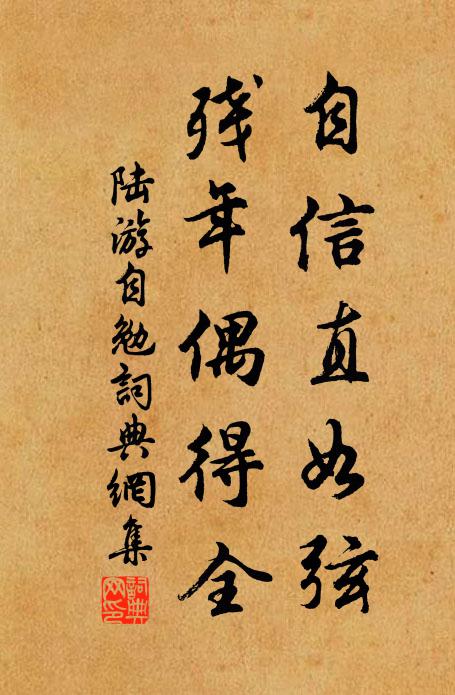 自信直如弦
殘年偶得全
陸游自勉詞典網集
詞典網印